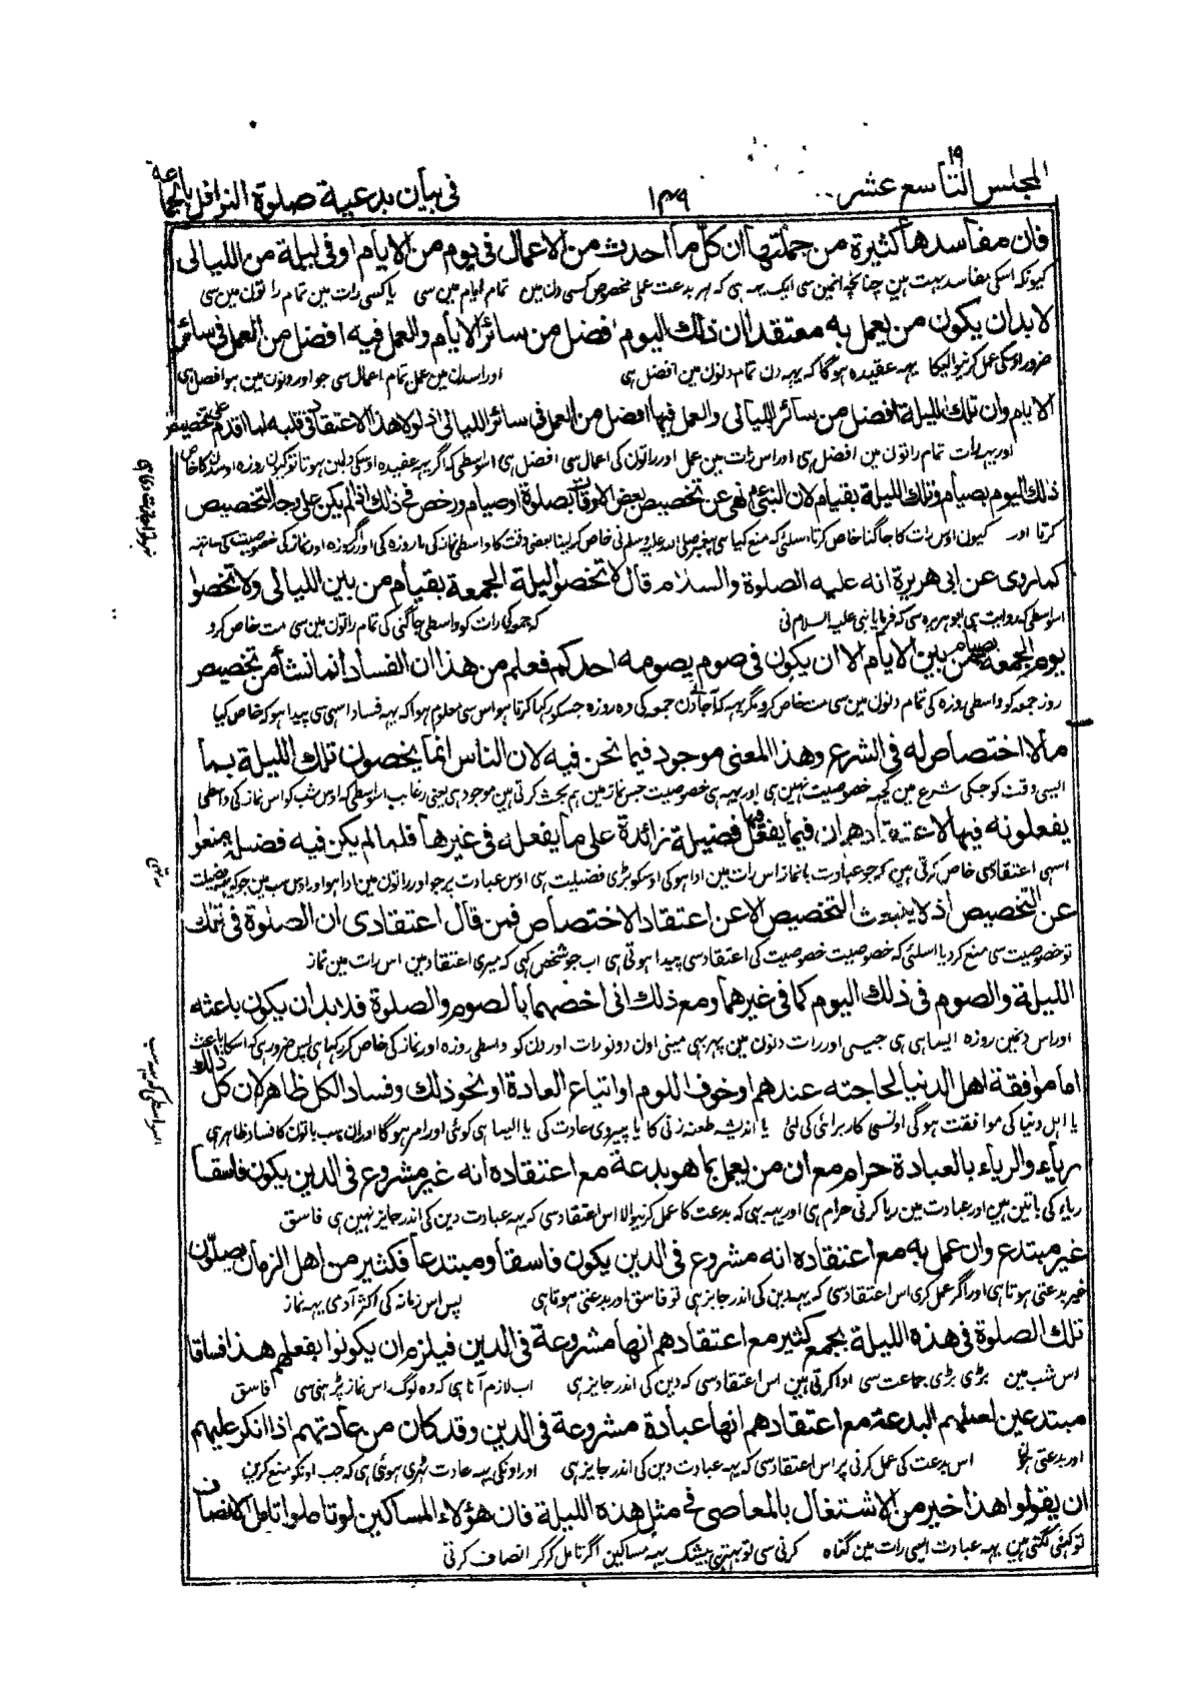 المجلس التاسع عشر ١٩
١٤٩
فى بيان بدعية صلوة النوافل بالجماعة
فان مفاسدها كثيرة من جملتها ان كل ما احدث من الاعمال فى يوم من الايام او فى ليلة من الليالى
کیونکہ اسکی مفاسد بہت ہین چنانچہ انمین سی ایک یہہ ہی کہ ہر بدعت عمل مخصوص کسی دن مین تمام ایام مین سی یا کسی رات مین تمام راتون مین سی
لا بد ان يكون من يعمل به معتقدا ان ذلك اليوم افضل من سائر الايام والعمل فيه افضل من العمل فى سائر
ضرور اوسکی عمل کرنیوالیکا یہہ عقیدہ ہوگا کہ یہہ دن تمام دنون مین افضل ہی اور اسدن مین عمل تمام اعمال سی جو اور دنون مین ہو افضل ہی
الايام وان تلك الليلة افضل من سائر الليالى والعمل فيها افضل من العمل فى سائر الليالى اذ لولا هذا الاعتقاد فى قلبه لما اقدم على تخصيص
اور یہہ رات تمام راتون مین افضل ہی اور اس رات مین عمل اور راتون کی اعمال سی افضل ہی اسواسطی کہ اگر یہہ عقیدہ اوسکی دلمین ہوتا تو کیون روزہ اوسدن کا خاص
ذلك اليوم بصيام وتلك الليلة بقيام لان النبى ؑ نهى عن تخصيص بعض الاوقات بصلوة او صيام ورخص فى ذلك اذا لم يكن على وجه التخصيص
کرتا اور کیون اوس رات کا جاگنا خاص کرتا اسلئی کہ منع کیا ہی پیغمبر صلی اللہ علیہ وسلم نی خاص کر لینا بعضی وقت کا واسطی نماز کی یا روزہ کی اور اگر روزہ اور نماز کی خصوصیت کی ساتھ
كما روى عن ابى هريرة انه عليه الصلوة والسلام قال لا تخصوا ليلة الجمعة بقيام من بين الليالى ولا تخصوا
اسواسطی کہ روایت ہی ابوہریرہ سی کہ فرمایا نبی علیہ السلام نی کہ جمعہ کی رات کو واسطی جاگنی کی تمام راتون مین سی مت خاص کرو
يوم الجمعة بصيام من بين الايام الا ان يكون فى صوم يصومه احدكم فعلم من هذا ان الفساد انما نشأ من تخصيص
روز جمعہ کو واسطی روزہ کی تمام دنون مین سی مت خاص کرو مگر یہہ کہ آجائی دن جمعہ کی وہ روزہ جسکو رکہا کرتا ہو اس سی معلوم ہوا کہ یہہ فساد اسی سی پیدا ہو کہ خاص کیا
ما لا اختصاص له فى الشرع وهذا المعنى موجود فيما نحن فيه لان الناس انما يخصون تلك الليلة بما
ایسی وقت کو جسکی شرع مین کچھ خصوصیت نہین ہی اور یہہ ہی خصوصیت جس نماز مین ہم بحث کرتی ہین موجود ہی یعنی رغائب اسواسطی کہ اوس شب کو اس نماز کی واسطی
يفعلونه فيها لاعتقادهم ان فيما يفعل فيها فضيلة زائدة على ما يفعله فى غيرها فلما لم يكن فيه فضل منعوا
اسی اعتقاد سی خاص کرتی ہین کہ جو عبادت یا نماز اس رات مین ادا ہوگی اوسکو بڑی فضیلت ہی اوس عبادت پر جو اور راتون مین ادا ہو اور اوس سب مین جو کچھ فضیلت
عن التخصيص اذ لا ينبعث التخصيص الا عن اعتقاد الاختصاص فمن قال اعتقادى ان الصلوة فى تلك
تو خصوصیت سی منع کردیا اسلئی کہ خصوصیت خصوصیت کی اعتقاد سی پیدا ہوتی ہی اب جو شخص کہی کہ میری اعتقاد مین اس رات مین نماز
الليلة والصوم فى ذلك اليوم كما فى غيرهما ومع ذلك انى اخصهما بالصوم والصلوة فلا بد ان يكون باعثه
اور اس دنمین روزہ ایسا ہی ہی جیسی اور رات دنون مین پھر بہی مینی اون دونو رات اور دن کو واسطی روزہ اور نماز کی خاص کر رکہا ہی پس ضرور ہی کہ اسکا باعث
اما موافقة اهل الدنيا لحاجته عندهم او خوف اللوم او اتباع العادة او نحو ذلك وفساد الكل ظاهر لان كل ذلك
یا اہل دنیا کی موافقت ہوگی اونسی کار برائی کی لئی یا اندیشہ طعنہ زنی کا یا پیروی عادت کی یا ایسا ہی کوئی اور امر ہوگا اور ان سب باتون کا فساد ظاہر ہی
رياء والرياء بالعبادة حرام مع ان من يعمل بما هو بدعة مع اعتقاده انه غير مشروع فى الدين يكون فاسقا
ریاء کی باتین ہین اور عبادت مین ریا کرنی حرام ہی اور یہہ بہی کہ بدعت کا عمل کرنیوالا اس اعتقاد سی کہ یہہ عبادت دین کی اندر جایز نہین ہی فاسق
غير مبتدع وان عمل به مع اعتقاده انه مشروع فى الدين يكون فاسقا ومبتدعا فكثير من اهل الزمان يصلون
غیر بدعتی ہوتا ہی اور اگر عمل کری اس اعتقاد سی کہ یہہ دین کی اندر جایز ہی تو فاسق اور بدعتی ہوتا ہی پس اس زمانہ کی اکثر آدمی یہہ نماز
تلك الصلوة فى هذه الليلة بجمع كثير مع اعتقادهم انها مشروعة فى الدين فيلزم ان يكونوا بفعلهم هذا فساقا
اس شب مین بڑی بڑی جماعت سی ادا کرتی ہین اس اعتقاد سی کہ دین کی اندر جایز ہی اب لازم آتا ہی کہ وہ لوگ اس نماز پڑہنی سی فاسق
مبتدعين لعملهم البدعة مع اعتقادهم انها عبادة مشروعة فى الدين وقد كان من عادتهم اذا انكر عليهم
اور بدعتی ہون اس بدعت کی عمل کرنی پر اس اعتقاد سی کہ یہہ عبادت دین کی اندر جایز ہی اور اونکی یہہ عادت ٹہری ہوئی ہی کہ جب اونکو منع کرین
ان يقولوا هذا خير من الاشتغال بالمعاصى فى مثل هذه الليلة فان هؤلاء المساكين لو تاملوا تامل الانصاف
تو کہنی لگتی ہین یہہ عبادت ایسی رات مین گناہ کرنی سی تو بہتر ہی بیشک یہہ مساکین اگر تامل کر کر انصاف کرتی